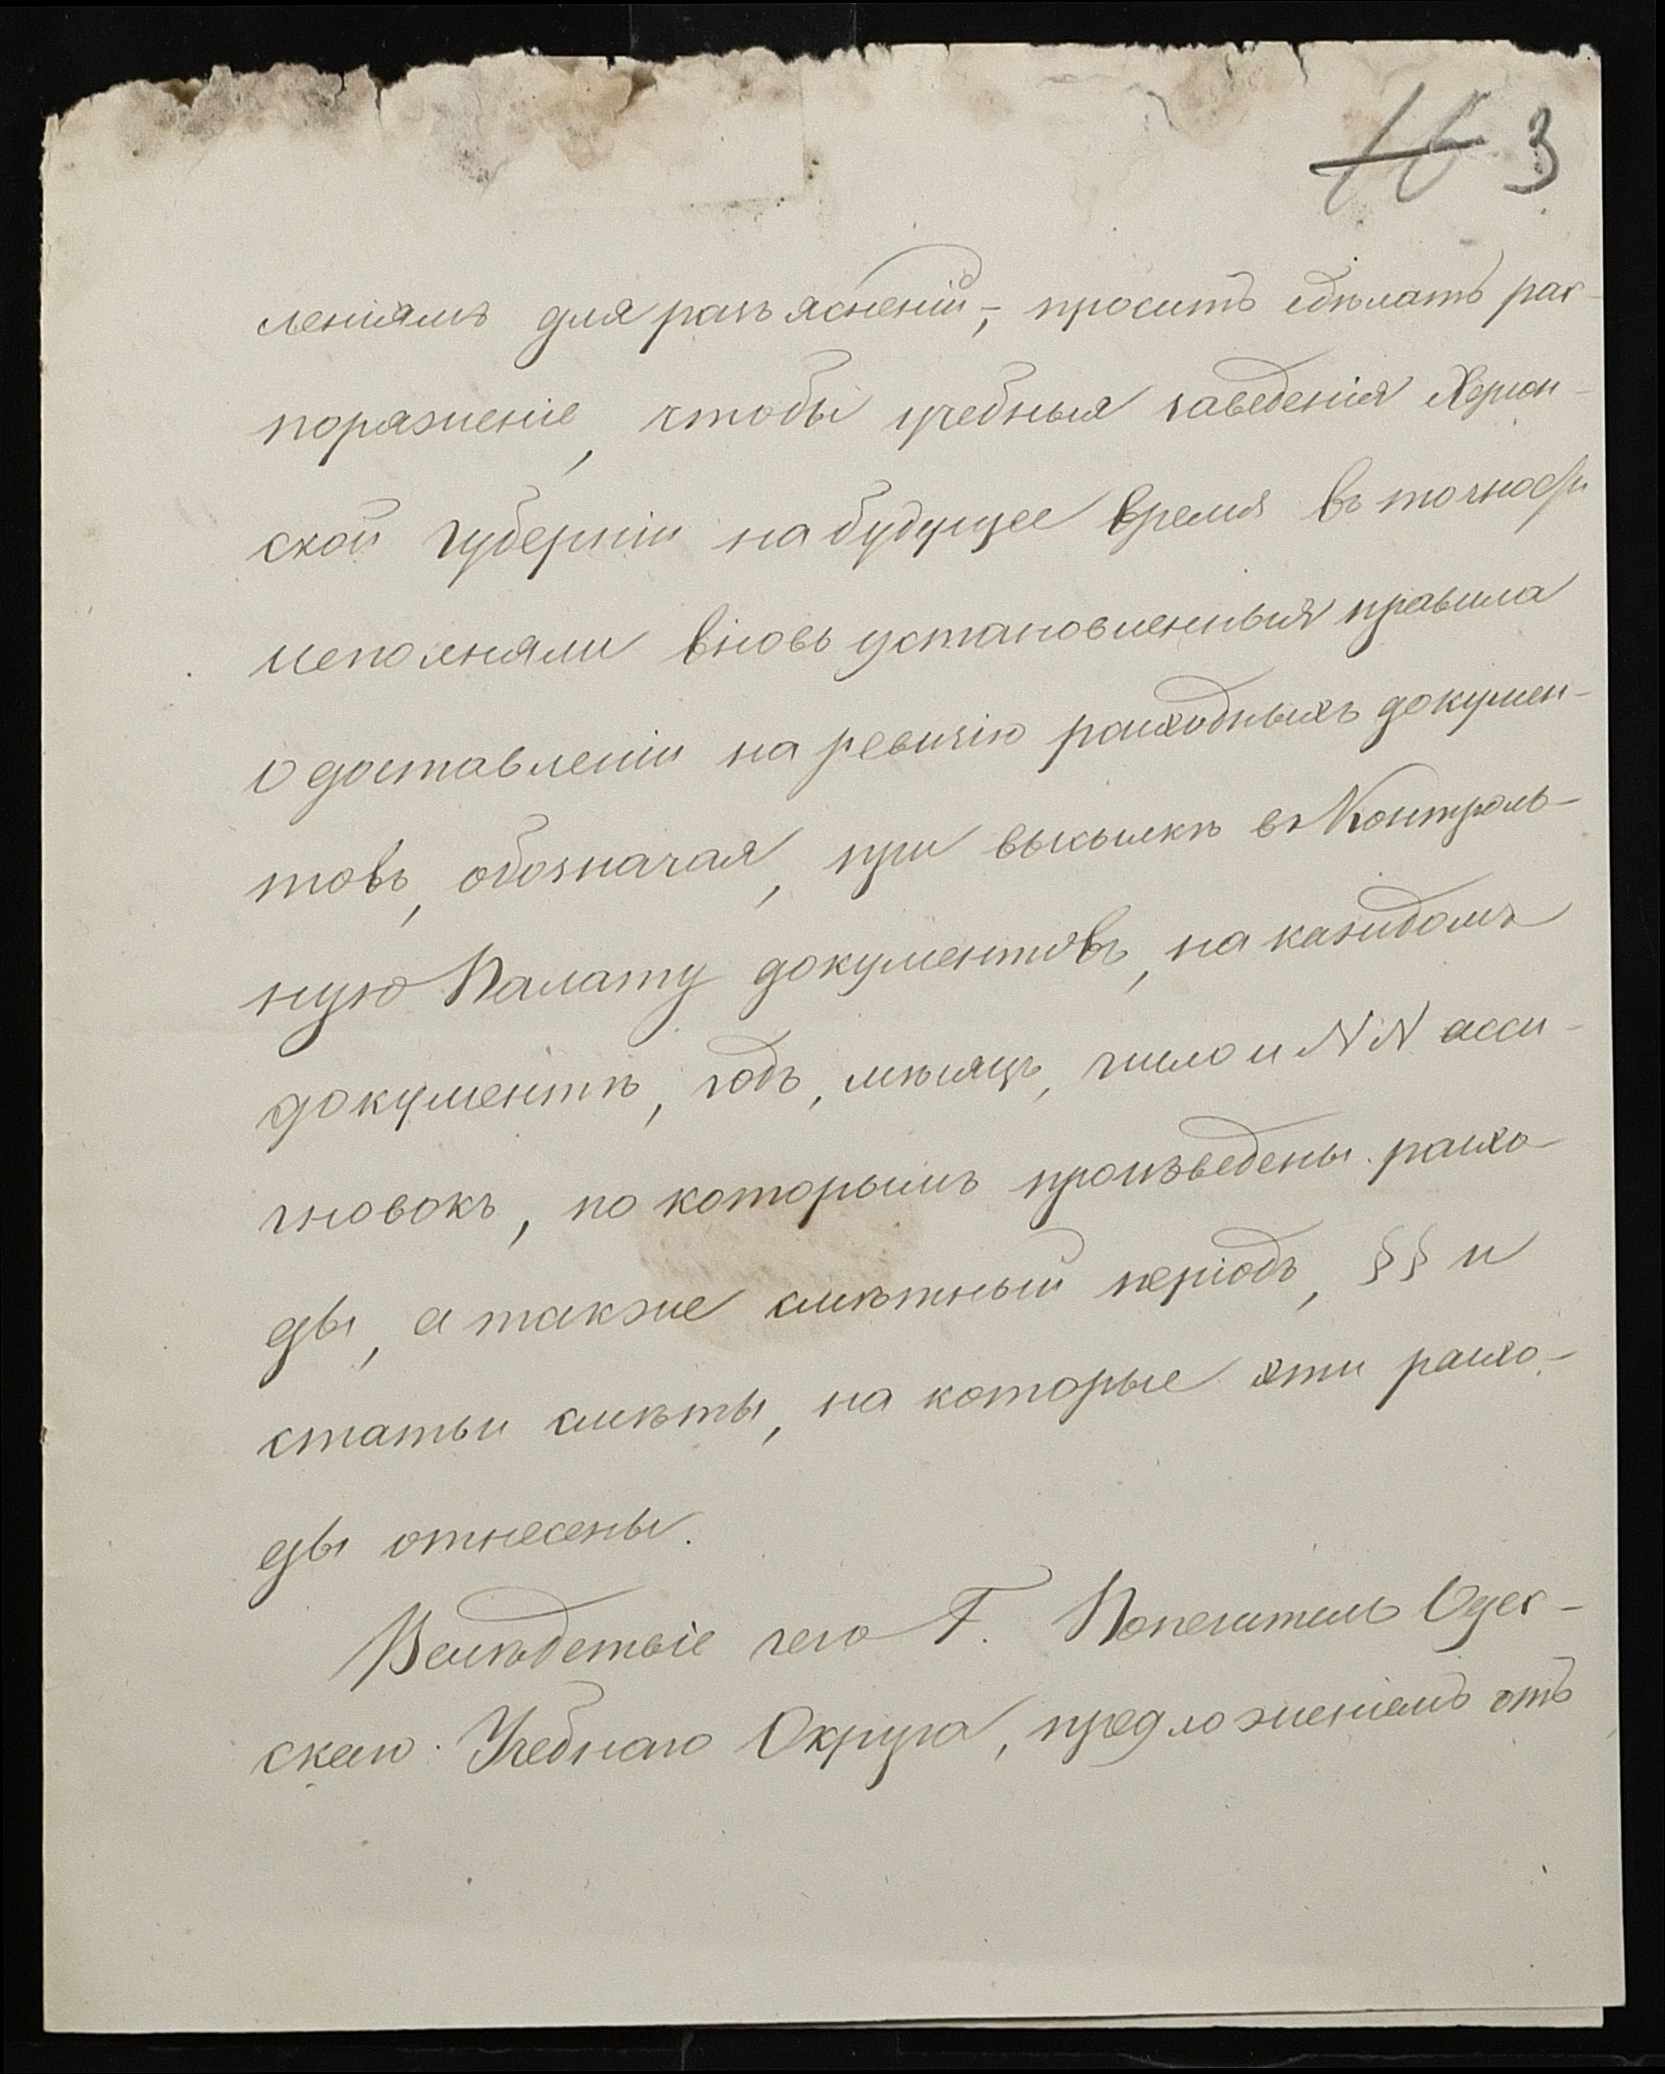 16 3
леніямъ для разъясненій, - проситъ сдѣлать рас-
поряженіе, чтобы учебныя заведенія Херсон-
ской губерніи на будущее время въ точности
исполняли вновь установленныя правила
о доставленіи на ревизію расходныхъ докумен-
товъ, обозначая, при высылкѣ въ Контроль-
ную Палату документовъ, на каждомъ
документѣ, годъ, мѣсяцъ, число и NN асси-
гновокъ, по которымъ произведены расхо-
ды, а также смѣтный періодъ, §§ и
статьи смѣты, на которые эти расхо-
ды отнесены.
Вслѣдствіе чего Г. Попечитель Одес-
скаго Учебнаго Округа, предложеніемъ отъ